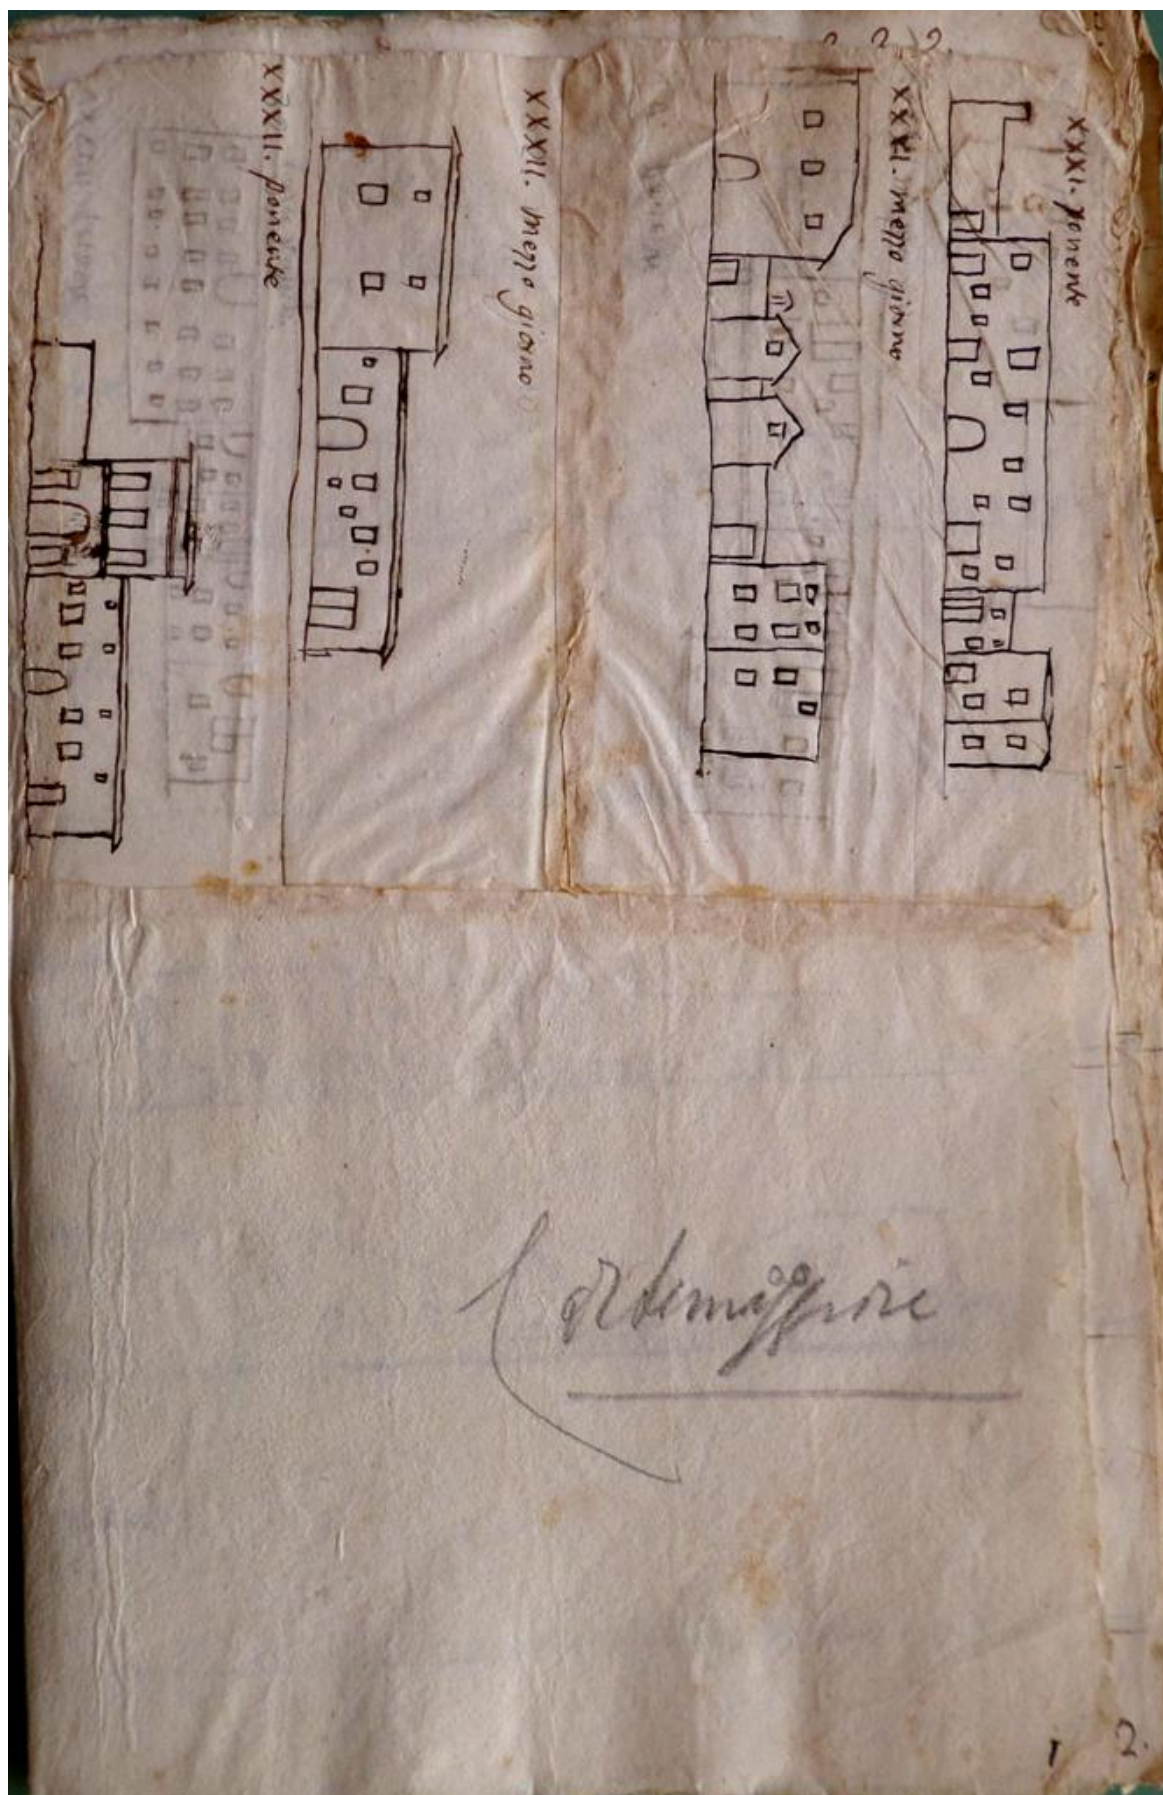 XXXI. ponente
XXXI. mezzo giorno
XXXII. mezzo giorno
XXXII. ponente
Cortemaggiore
1 2.